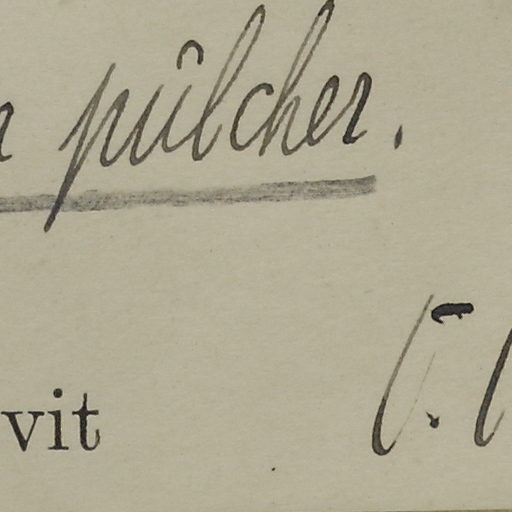 pulcher.
vit